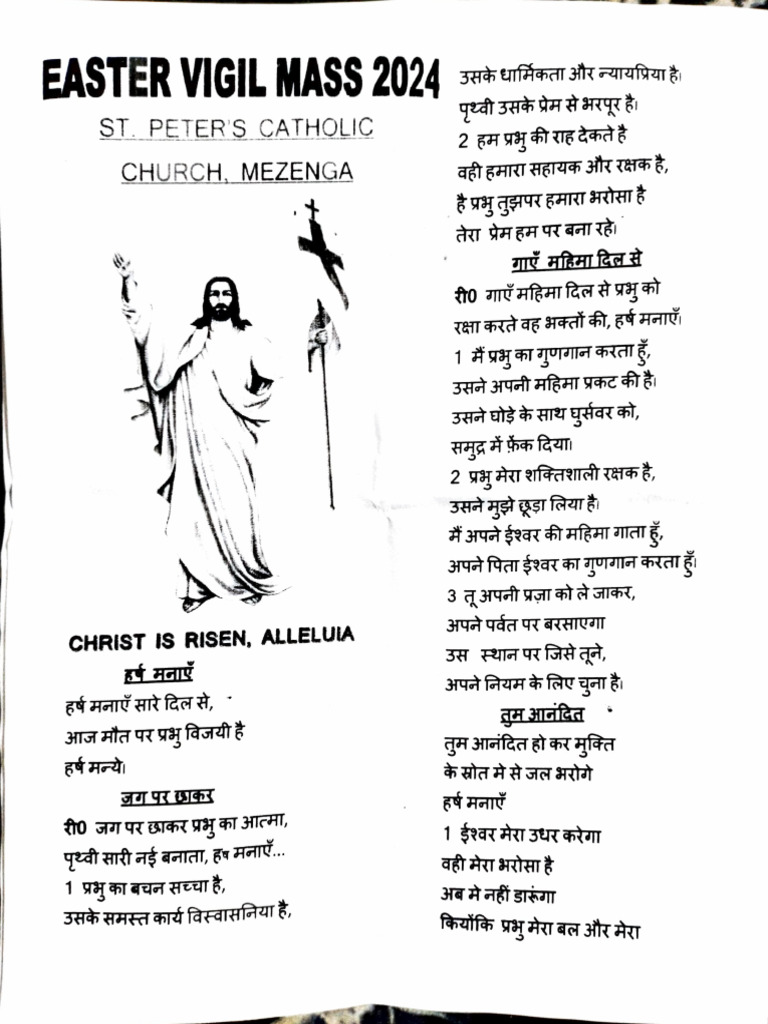 EASTER VIGIL MASS 2024
ST. PETER'S CATHOLIC
CHURCH, MEZENGA
CHRIST IS RISEN, ALLELUIA
हर्ष मनाएँ
हर्ष मनाएँ सारे दिल से,
आज मौत पर प्रभु विजयी है
हर्ष मन्ये।
जग पर छाकर
री0 जग पर छाकर प्रभु का आत्मा,
पृथ्वी सारी नई बनाता, हर्ष मनाएँ...
1 प्रभु का बचन सच्चा है,
उसके समस्त कार्य विस्वासनिया है,
उसके धार्मिकता और न्यायप्रिया है।
पृथ्वी उसके प्रेम से भरपूर है।
2 हम प्रभु की राह देकते है
वही हमारा सहायक और रक्षक है,
है प्रभु तुझपर हमारा भरोसा है
तेरा प्रेम हम पर बना रहे।
गाएँ महिमा दिल से
री0 गाएँ महिमा दिल से प्रभु को
रक्षा करते वह भक्तों की, हर्ष मनाएँ।
1 मैं प्रभु का गुणगान करता हुँ,
उसने अपनी महिमा प्रकट की है।
उसने घोड़े के साथ घुर्सवर को,
समुद्र में फ़ेंक दिया।
2 प्रभु मेरा शक्तिशाली रक्षक है,
उसने मुझे छूड़ा लिया है।
मैं अपने ईश्वर की महिमा गाता हुँ,
अपने पिता ईश्वर का गुणगान करता हुँ।
3 तू अपनी प्रज़ा को ले जाकर,
अपने पर्वत पर बरसाएगा
उस स्थान पर जिसे तूने,
अपने नियम के लिए चुना है।
तुम आनंदित
तुम आनंदित हो कर मुक्ति
के स्रोत मे से जल भरोगे
हर्ष मनाएँ
1 ईश्वर मेरा उधर करेगा
वही मेरा भरोसा है
अब मे नहीं डारूंगा
कियोंकि प्रभु मेरा बल और मेरा